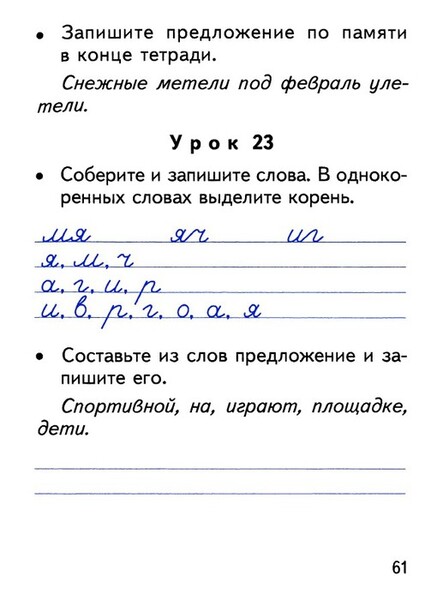 • Запишите предложение по памяти
в конце тетради.
Снежные метели под февраль уле-
тели.
Урок 23
• Соберите и запишите слова. В одноко-
ренных словах выделите корень.
мя яч иг
я, м, ч
а, г, и, р
и, в, р, г, о, а, я
• Составьте из слов предложение и за-
пишите его.
Спортивной, на, играют, площадке,
дети.
61